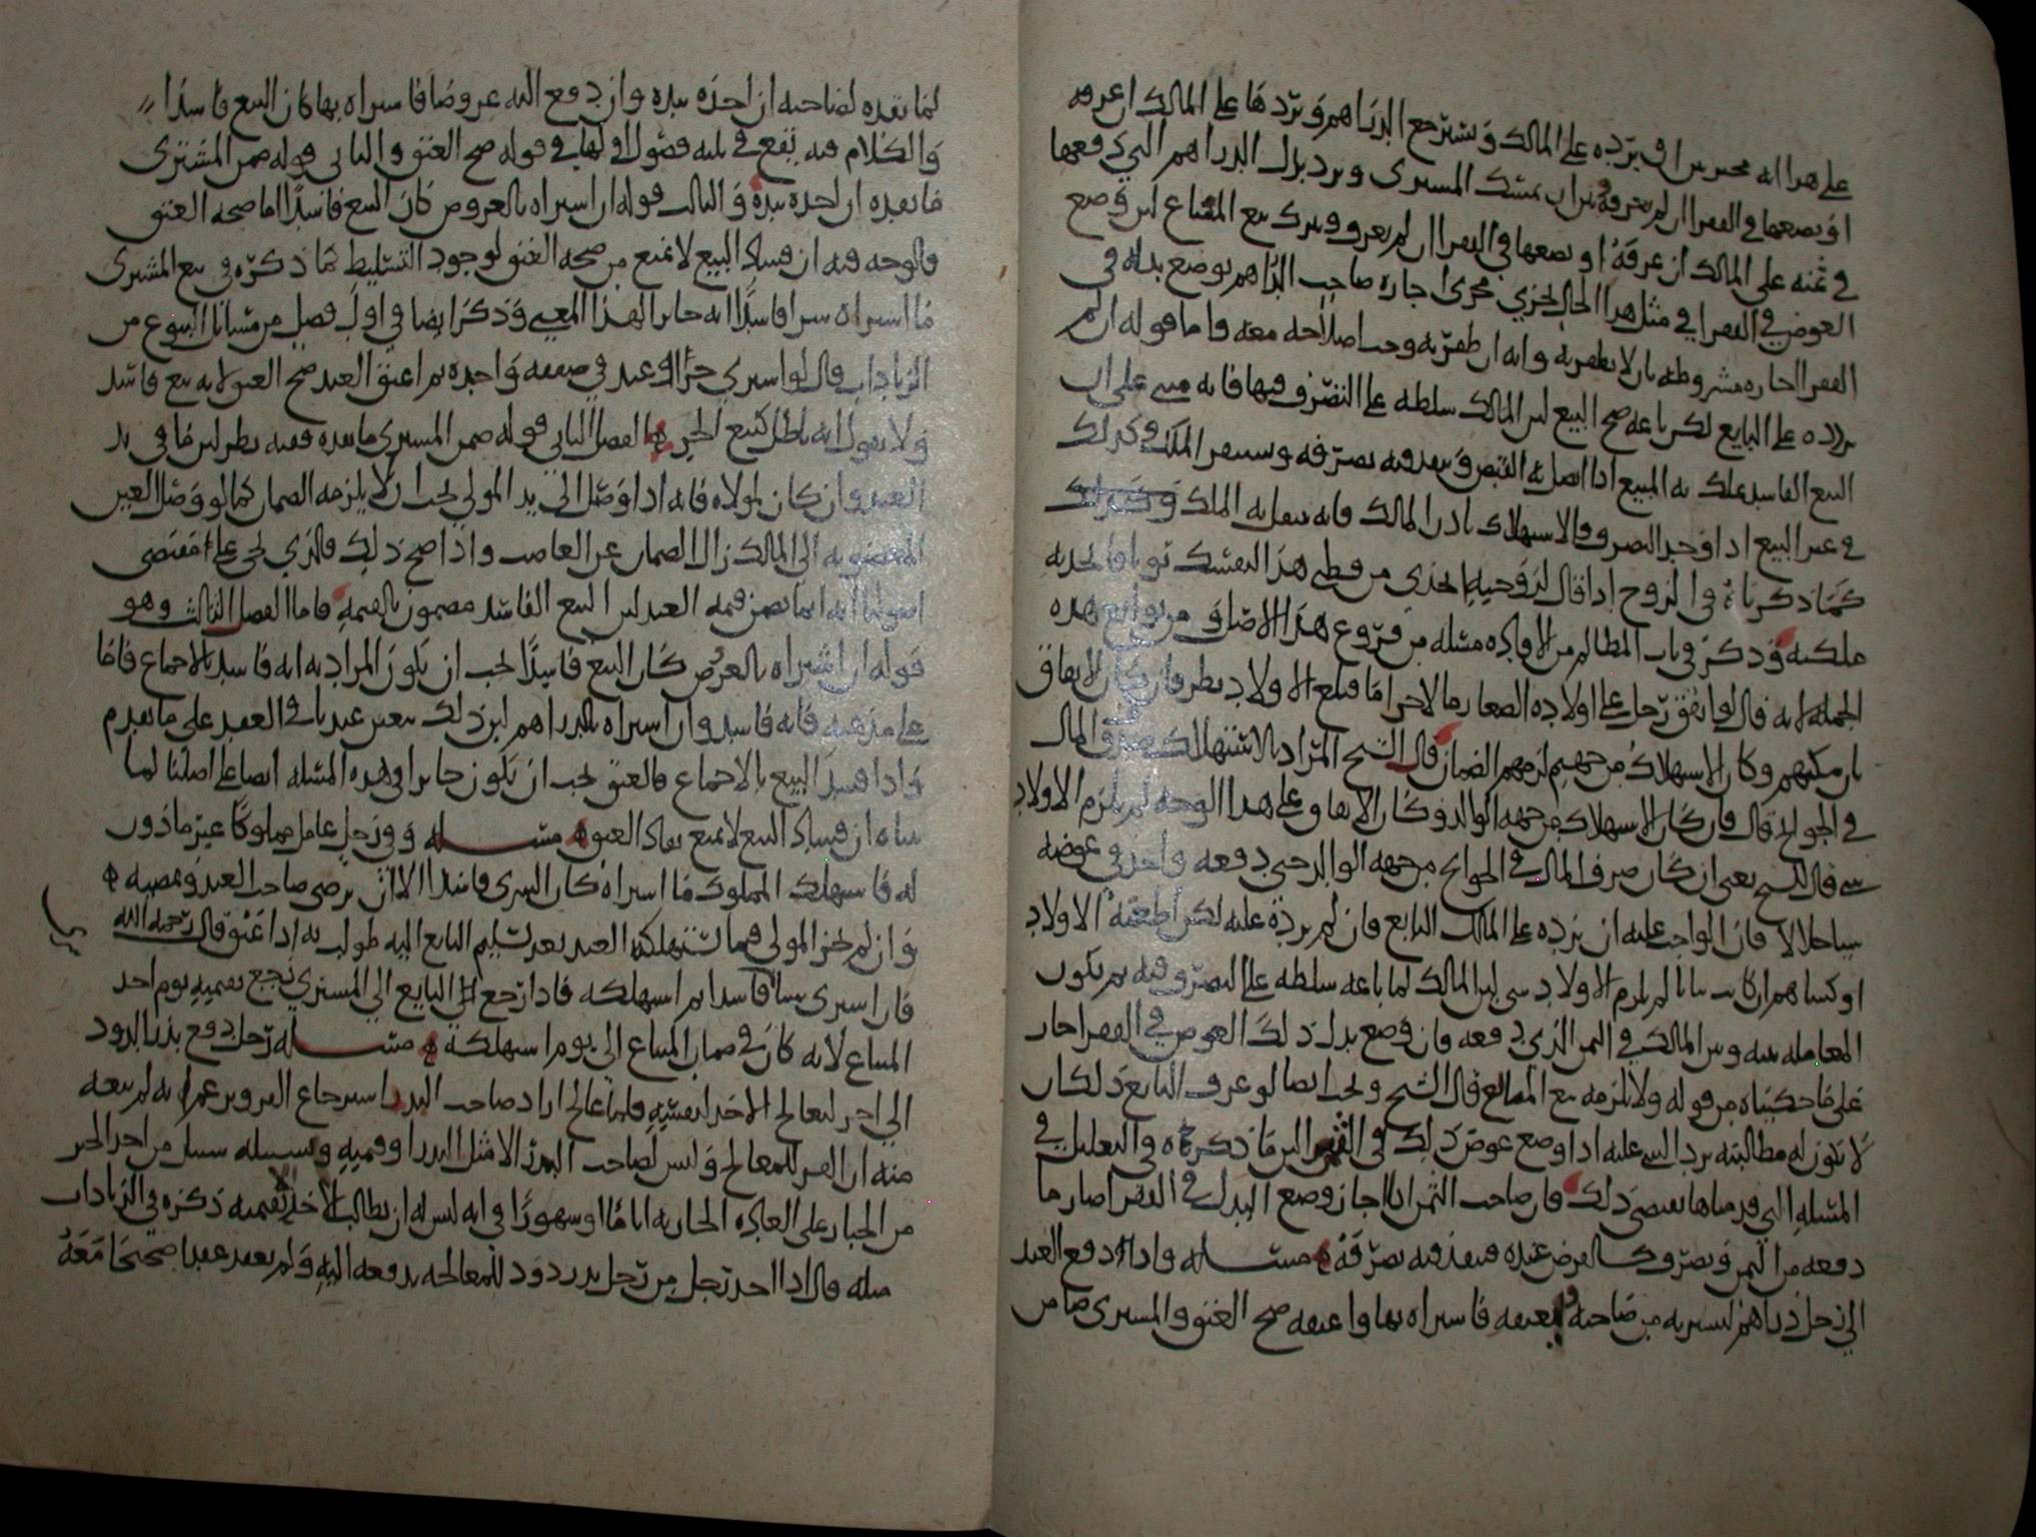 على هذا انه مخير بين ان يرده على المالك ويسترجع الدراهم ويردها على المالك ان عرفه
او يضعها في الفقرا ان لم يعرفه وبين ان يمسك المشترى ويرد بدل الدراهم التي دفعها
في ثمنه على المالك ان عرفه او يضعها في الفقرا ان لم يعرف ويترك بيع المتاع لان وضع
العوض في الفقرا في مثل هذا الحال يجري مجرى اجازه صاحب الدراهم بوضع بدله في
الفقرا اجازه مشروطه بان لا يظفر به وانه ان ظفر به وجب اصلاحه معه واما قوله ان لم
يرده على البايع لكن باعه صح البيع لان المالك سلطه على التصرف فيها فانه مبني على ان
البيع الفاسد يملك به المبيع اذا اتصل به القبض وينفذ فيه تصرفه وسبيل الملك وكذلك
في غير البيع اذا وجد التصرف والاستهلاك باذن المالك فانه ينتقل به الملك وكذلك
كما ذكرناه في الزوج اذا قال لزوجته اتخذي من قطن هذا لنفسك ثوبا فاتخذته
ملكته وذكر في باب المظالم من الافاده مسئله من فروع هذا الاصل وفي من توابع هذه
الجمله لانه قال لو انفق رجل على اولاده الصغار مالا حراما فبلغ الاولاد نظر فان كان الانفاق
بان مكنهم وكان الاستهلاك من جهتهم لزمهم الضمان قال الشيخ المراد بالاستهلاك صرف المال
في الحوائج قال فان كان الاستهلاك من جهه الوالد وكان الانفاق على هذا الوجه لم يلزم الاولاد
شي قال الشيخ يعني ان كان صرف المال في الحوائج من جهه الوالد حتى دفعه واخذ في عوضه
شيا حلالا فان الواجب عليه ان يرده على المالك البايع فان لم يرده عليه لكن اطعمه الاولاد
او كساهم ان كانت ثيابا لم يلزم الاولاد شي لان المالك لما باعه سلطه على التصرف فيه ثم يكون
المعامله بينه وبين المالك في الثمن الذي دفعه فان وضع بدل ذلك العوض في الفقرا جاز
على ما حكيناه من قوله ولا يلزمه بيع المبايع قال الشيخ ويجب ايضا لو عرف البايع ذلك ان
لا تكون له مطالبته برد الشي عليه اذا وضع عوض ذلك في الفقرا لان ما ذكرناه في التعليل في
المسئله التي قدمناها يقتضي ذلك فان صاحب الثمن اذا اجاز وضع البدل في الفقرا صار ما
دفعه من الثمن وتصرف كالقرض عنده فينفذ فيه تصرفه مسئله واذا دفع العبد
الى رجل دراهم ليشتريه من صاحبه ويعتقه فاشتراه بها واعتقه صح العتق والمشترى ضامن
لما نقده لصاحبه ان اخذه بيده وان دفع اليه عروضا فاشتراه بها كان البيع فاسدا
والكلام فيه يقع في ثلثه فصول اولها في قوله صح العتق والثاني قوله ضمن المشترى
ما نقده ان اخذه بيده والثالث قوله ان اشتراه بالعروض كان البيع فاسدا اما صحه العتق
فالوجه فيه ان فساد البيع لا يمنع من صحه العتق لوجود التسليط كما ذكره في بيع المشترى
ما اشتراه شرا فاسدا انه جائز لهذا المعنى وذكر ايضا في اول فصل من مسائل البيوع من
الزيادات قال لو اشتري حرا او عبد في صفقه واحده ثم اعتق العبد صح العتق لانه بيع فاسد
ولا يقول انه باطل كبيع الحر الفصل الثاني قوله ضمن المشترى ما نقده ففيه نظر لان ما في يد
العبد وان كان لمولاه فانه اذا وصل الى يد المولى يجب ان لا يلزمه الضمان كما لو وصل العين
المغصوبه الى المالك زال الضمان عن الغاصب واذا صح ذلك فالذي يجي على مقتضى
اصولنا انه انما يضمن قيمه العبد لان البيع الفاسد مضمون بالقيمه فاما الفصل الثالث وهو
قوله ان اشتراه بالعرض كان البيع فاسدا يجب ان يكون المراد به انه فاسد بالاجماع فاما
على مذهبه فانه فاسد وان اشتراه بالدراهم لان ذلك يتعين عندنا في العقد على ما تقدم
واذا فسد البيع بالاجماع فالعتق يجب ان يكون جائزا في هذه المسئله ايضا على اصلنا لما
بيناه ان فساد البيع لا يمنع نفاذ العتق مسئله وفي رجل عامل مملوكا غير ماذون
له فاستهلك المملوك ما اشتراه كان الشرى فاسدا الا ان يرضى صاحب العبد ويمضيه
وان لم يجز المولى فما استهلكه العبد بعد تسليم البايع اليه طولب به اذا عتق قال رحمه الله
فان اشترى شيا فاسدا ثم استهلكه فاذا رجع البايع الى المشترى رجع بقيمته يوم اخذ
المتاع لانه كان في ضمان المتاع الى يوم استهلكه مسئله رجل دفع بذر الدود
الى اخر ليعالج الاخر لنفسه فلما عالج اراد صاحب البذر استرجاع القز وزعم انه لم يبعه
منه ان القز للمعالج وليس لصاحب البذر الا مثل البذر او قيمته وسبيله سبيل من اخذ الخبز
من الخباز على العاده الجاريه اياما او شهورا في انه ليس له ان يطالب الاخذ بقيمته ذكره في الزيادات
مثله قال اذا اخذ رجل من رجل بذر دود للمعالجه بدفعه اليه ولم يعقد عقدا صحيحا معه